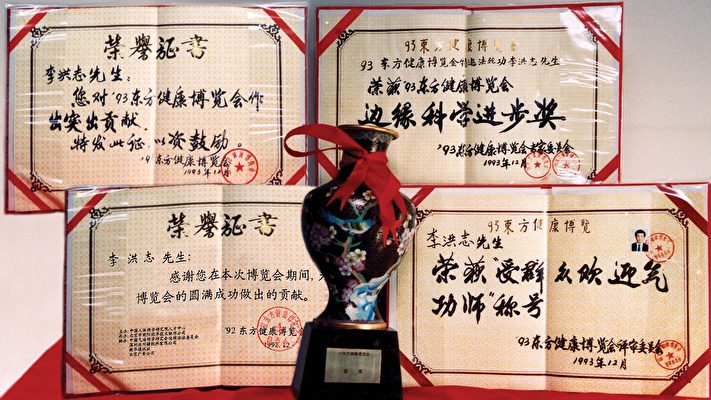 荣誉证书
李洪志先生：
您对'93东方健康博览会作
出突出贡献。
特发此证，以资鼓励。
'92东方健康博览会
1993.12月
93東方健康博览會
93东方健康博览会
法轮功李洪志先生
荣获'93东方健康博览会
边缘科学进步奖
'93东方健康博览会专家委员会
1993年12月
荣誉证书
李洪志先生：
感谢您在本次博览会期间，
博览会的圆满成功做出的贡献。
'92东方健康博览会
93東方健康博览
李洪志先生
荣获“受群众欢迎气
功师”称号
'93东方健康博览会评审委员会
1993年12月
金奖